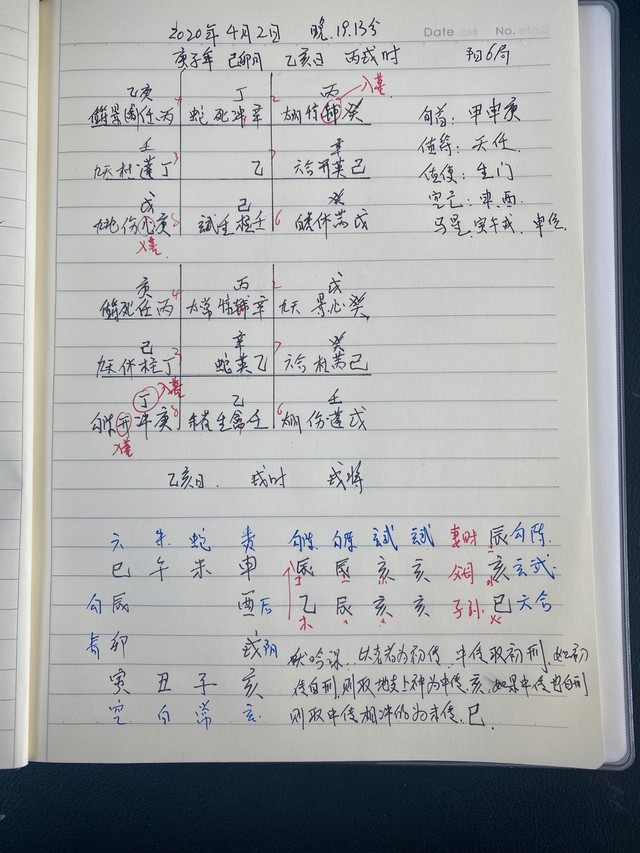 2020年4月2日 晚.19.13分
Date No.
庚子年 己卯月 乙亥日 丙戌时 阳6局
乙庚 丁 丙 入墓
蛇死冲辛
旬首：甲申庚
壬 辛
值符：天任
九天杜蓬丁 乙 六合开英己
值使：生门
戊 己 癸
空亡：申.酉
入墓
马星.寅午戌.申位.
庚 丙 戊
死任丙 九天景心癸
己 辛 癸
九天休柱丁 蛇英乙 六合杜芮己
丁 入墓 乙 壬
开冲庚 生禽壬 伤蓬戊
入墓
乙亥日. 戌时 戌将
六 朱 蛇 贵 勾陈 勾陈 玄武 玄武 妻财 辰 勾陈.
巳 午 未 申 辰 辰 亥 亥 父母 亥 玄武.
勾 辰 酉 后 乙 辰 亥 亥 子孙 巳 六合
青 卯 戌 阴
伏吟课..以克者为初传.中传取初刑.如初
寅 丑 子 亥 传自刑.则取地支上神为中传.亥.如果中传也自刑
空 白 常 玄. 则取中传相冲的为末传.巳.